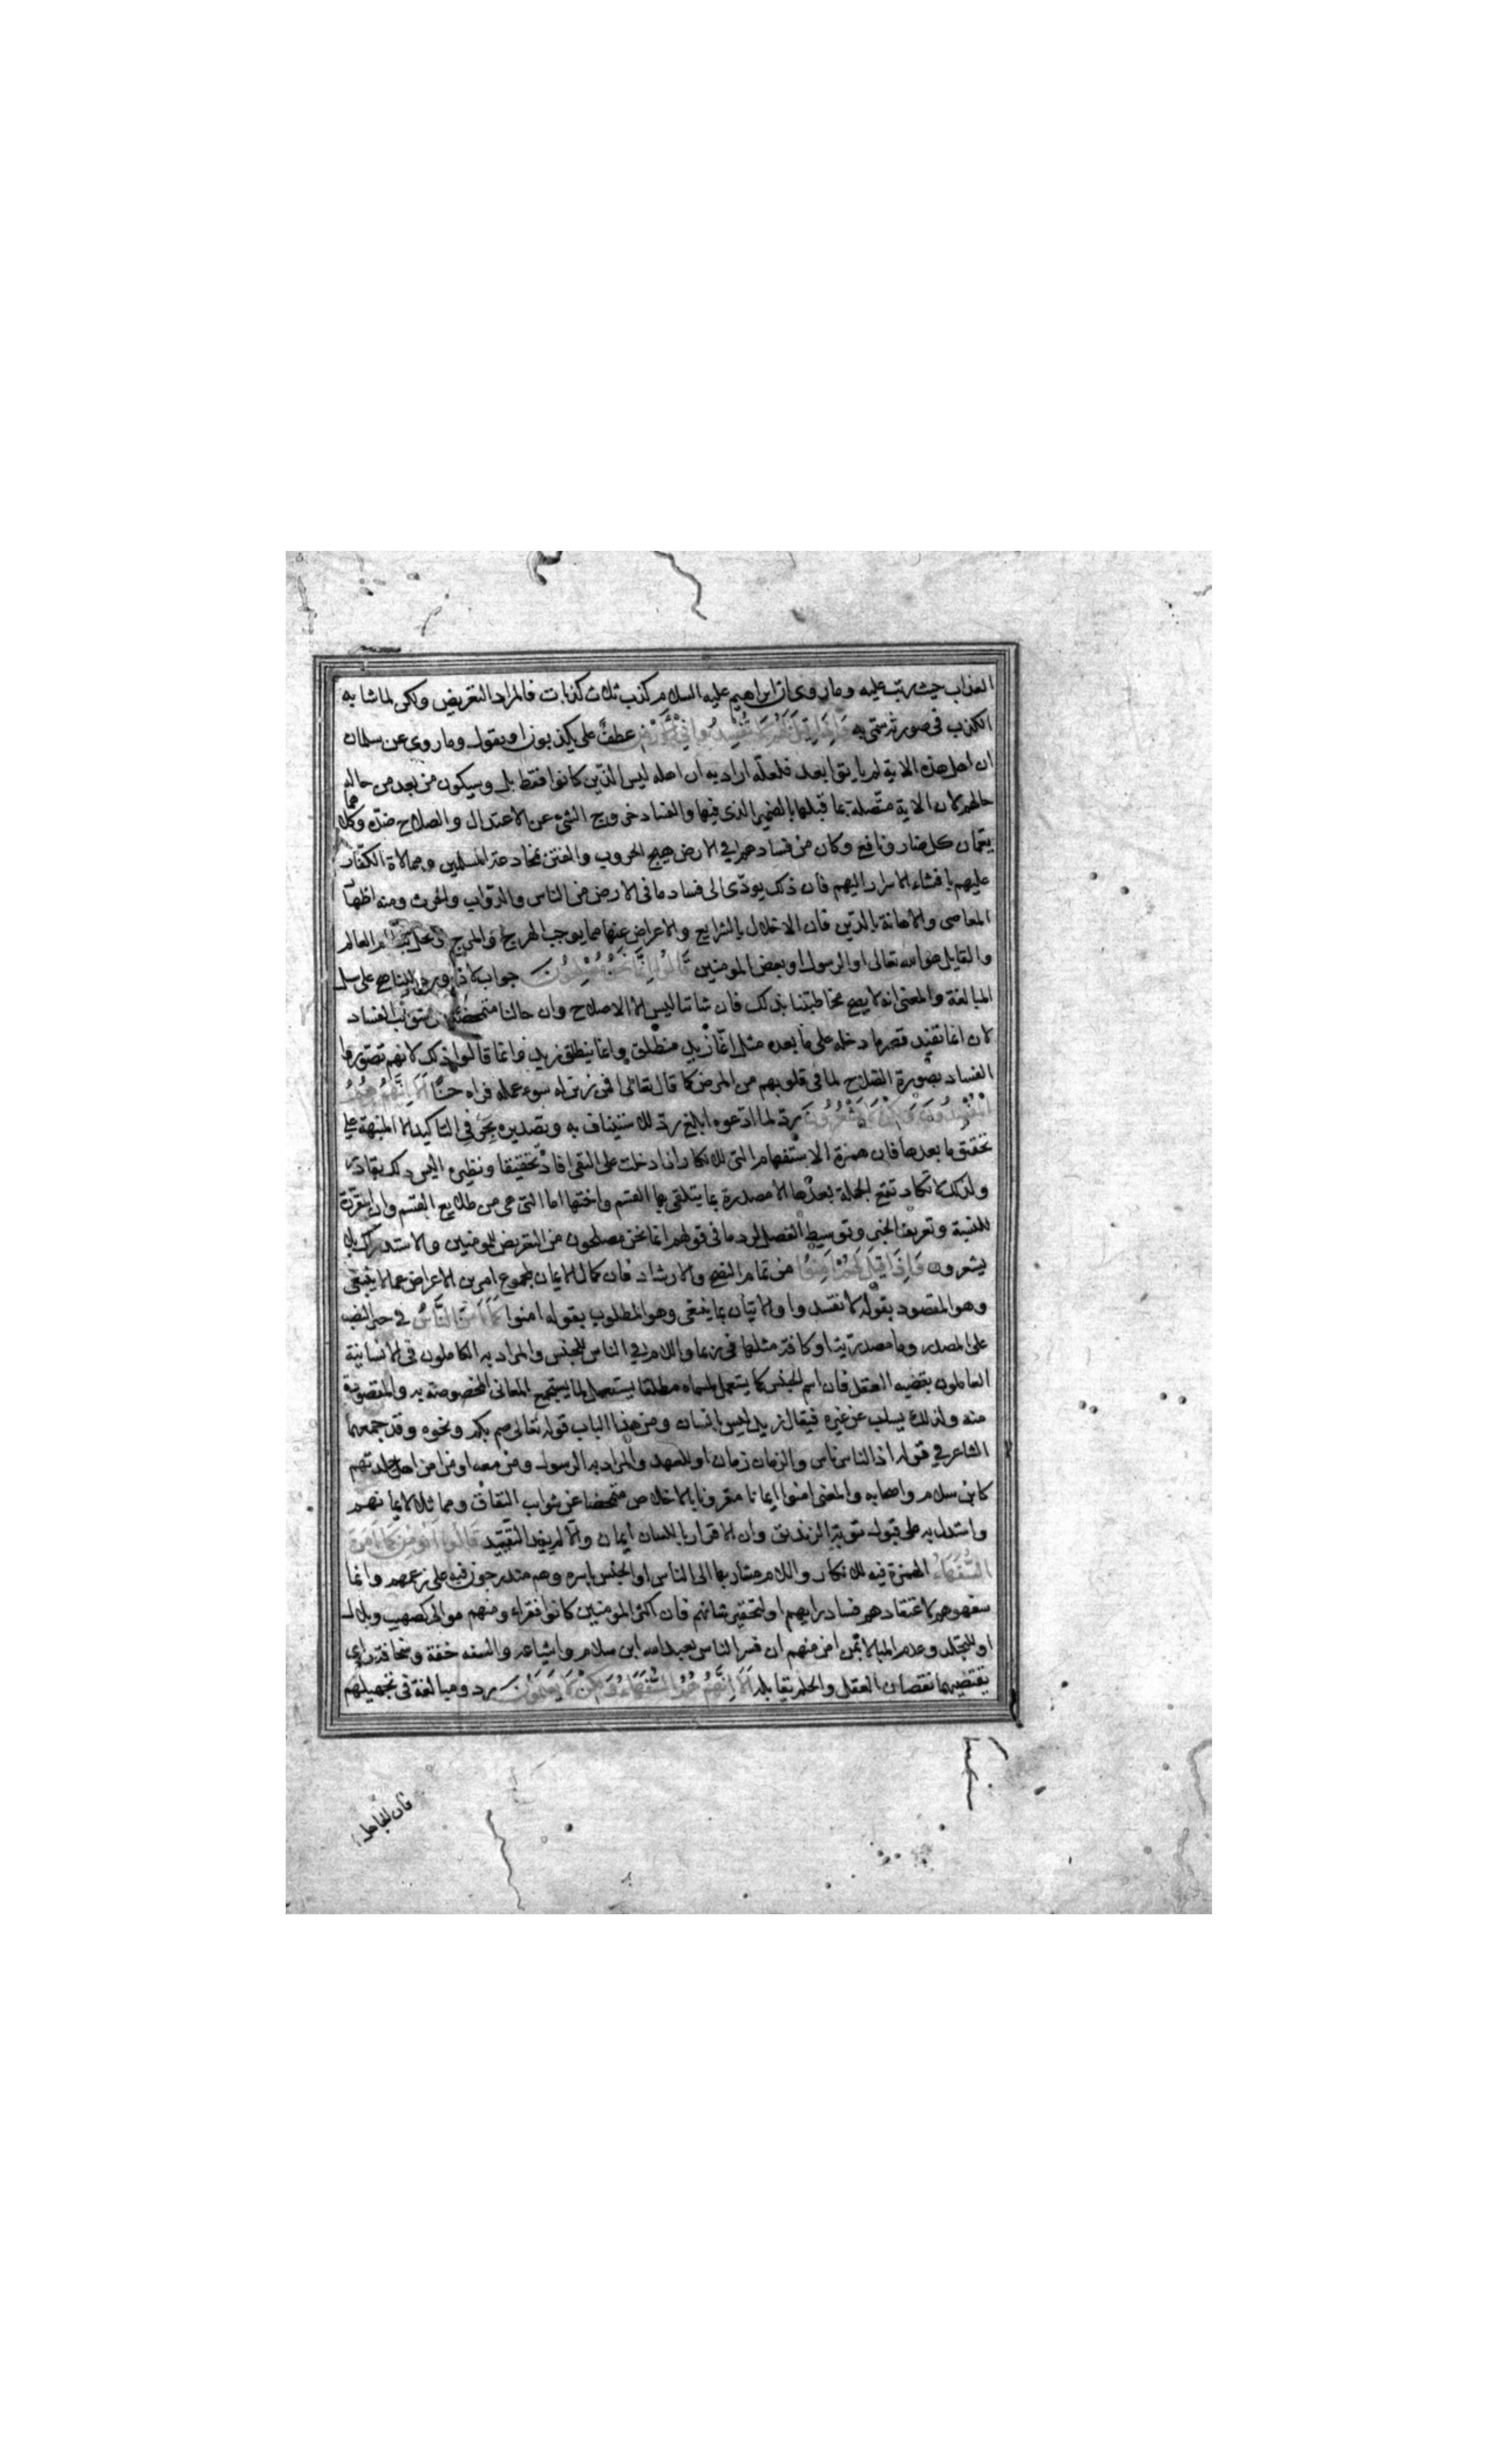 العذاب حيث رتب عليه وما روى ان ابراهيم عليه السلام كذب ثلاث كذبات فالمراد التعريض ولكن لما شابه
الكذب فى صورته سمى به وَاِذَا قِيلَ لَهُمْ لَا تُفْسِدُوا فِي الْاَرْضِ عطف على يكذبون او يقول وما روى عن سلمان
ان اهل هذه الاية لم ياتوا بعد فلعله اراد به ان اهله ليس الذين كانوا فقط بل وسيكون من بعد من حاله
حالهم لان الاية متصلة بما قبلها بالضمير الذى فيها والفساد خروج الشئ عن الاعتدال والصلاح ضده وكلاهما
يعمان كل ضار ونافع وكان من فسادهم في الارض هيج الحروب والفتن بمخادعة المسلمين وممالاة الكفار
عليهم بافشاء الاسرار اليهم فان ذلك يودى الى فساد ما فى الارض من الناس والدواب والحرث ومنه اظهار
المعاصى والاهانة بالدين فان الاخلال بالشرايع والاعراض عنها مما يوجب الهرج والمرج ويخل بنظام العالم
والقايل هو الله تعالى او الرسول او بعض المومنين قَالُوا اِنَّمَا نَحْنُ مُصْلِحُونَ جواب لاذا ورد للناصح على سبيل
المبالغة والمعنى انه لا يصح مخاطبتنا بذلك فان شاننا ليس الا الاصلاح وان حالنا متمحضة عن شوائب الفساد
لان انما تفيد قصر ما دخله على ما بعده مثل انما زيد منطلق وانما ينطلق زيد وانما قالوا ذلك لانهم تصوروا
الفساد بصورة الصلاح لما فى قلوبهم من المرض كما قال تعالى افمن زين له سوء عمله فراه حسنا اَلَا اِنَّهُمْ هُمُ
الْمُفْسِدُونَ وَلٰكِنْ لَا يَشْعُرُونَ رد لما ادعوه ابلغ رد للاستيناف به وتصديره بحرفى التاكيد الا المنبهة على
تحقق ما بعدها فان همزة الاستفهام التى للانكار اذا دخلت على النفى افادت تحقيقا ونظيره اليس ذلك بقادر
ولذلك لا تكاد تقع الجملة بعدها الا مصدرة بما يتلقى بها القسم واختها اما التى هى من طلايع القسم وان المقررة
للنسبة وتعريف الخبر وتوسيط الفصل لرد ما فى قولهم انما نحن مصلحون من التعريض للمومنين والاستدراك بلا
يشعرون وَاِذَا قِيلَ لَهُمْ اٰمِنُوا من تمام النصح والارشاد فان كمال الايمان بمجموع امرين الاعراض عما لا ينبغى
وهو المقصود بقوله لا تفسدوا والاتيان بما ينبغى وهو المطلوب بقوله امنوا كَمَا اٰمَنَ النَّاسُ في حيز النصب
على المصدر وما مصدرية او كافة مثلها فى ربما واللام في الناس للجنس والمراد به الكاملون فى الانسانية
العاملون بقضية العقل فان اسم الجنس كما يستعمل لمسماه مطلقا يستعمل لما يستجمع المعانى المخصوصة به والمقصودة
منه ولذلك يسلب عن غيره فيقال زيد ليس بانسان ومن هذا الباب قوله تعالى صم بكم ونحوه وقد جمعهما
الشاعر في قوله اذ الناس ناس والزمان زمان او للعهد والمراد به الرسول ومن معه او من امن من اهل جلدتهم
كابن سلام واصحابه والمعنى امنوا ايمانا مقرونا بالاخلاص متمحضا عن شوائب النفاق ومماثلا لايمانهم
واستدل به على قبول توبة الزنديق وان الاقرار باللسان ايمان والا لم يفد التقييد قَالُوا اَنُؤْمِنُ كَمَا اٰمَنَ
السُّفَهَاءُ الهمزة فيه للانكار واللام مشار بها الى الناس او الجنس باسره وهم مندرجون فيه على زعمهم وانما
سفهوهم لاعتقادهم فساد رايهم او لتحقير شانهم فان اكثر المومنين كانوا فقراء ومنهم موالى كصهيب وبلال
او للتجلد وعدم المبالاة بمن امن منهم ان فسر الناس بعبد الله ابن سلام واشياعه والسفه خفة وسخافة راى
يقتضيهما نقصان العقل والحلم يقابله اَلَا اِنَّهُمْ هُمُ السُّفَهَاءُ وَلٰكِنْ لَا يَعْلَمُونَ رد ومبالغة فى تجهيلهم
فان الجاهل